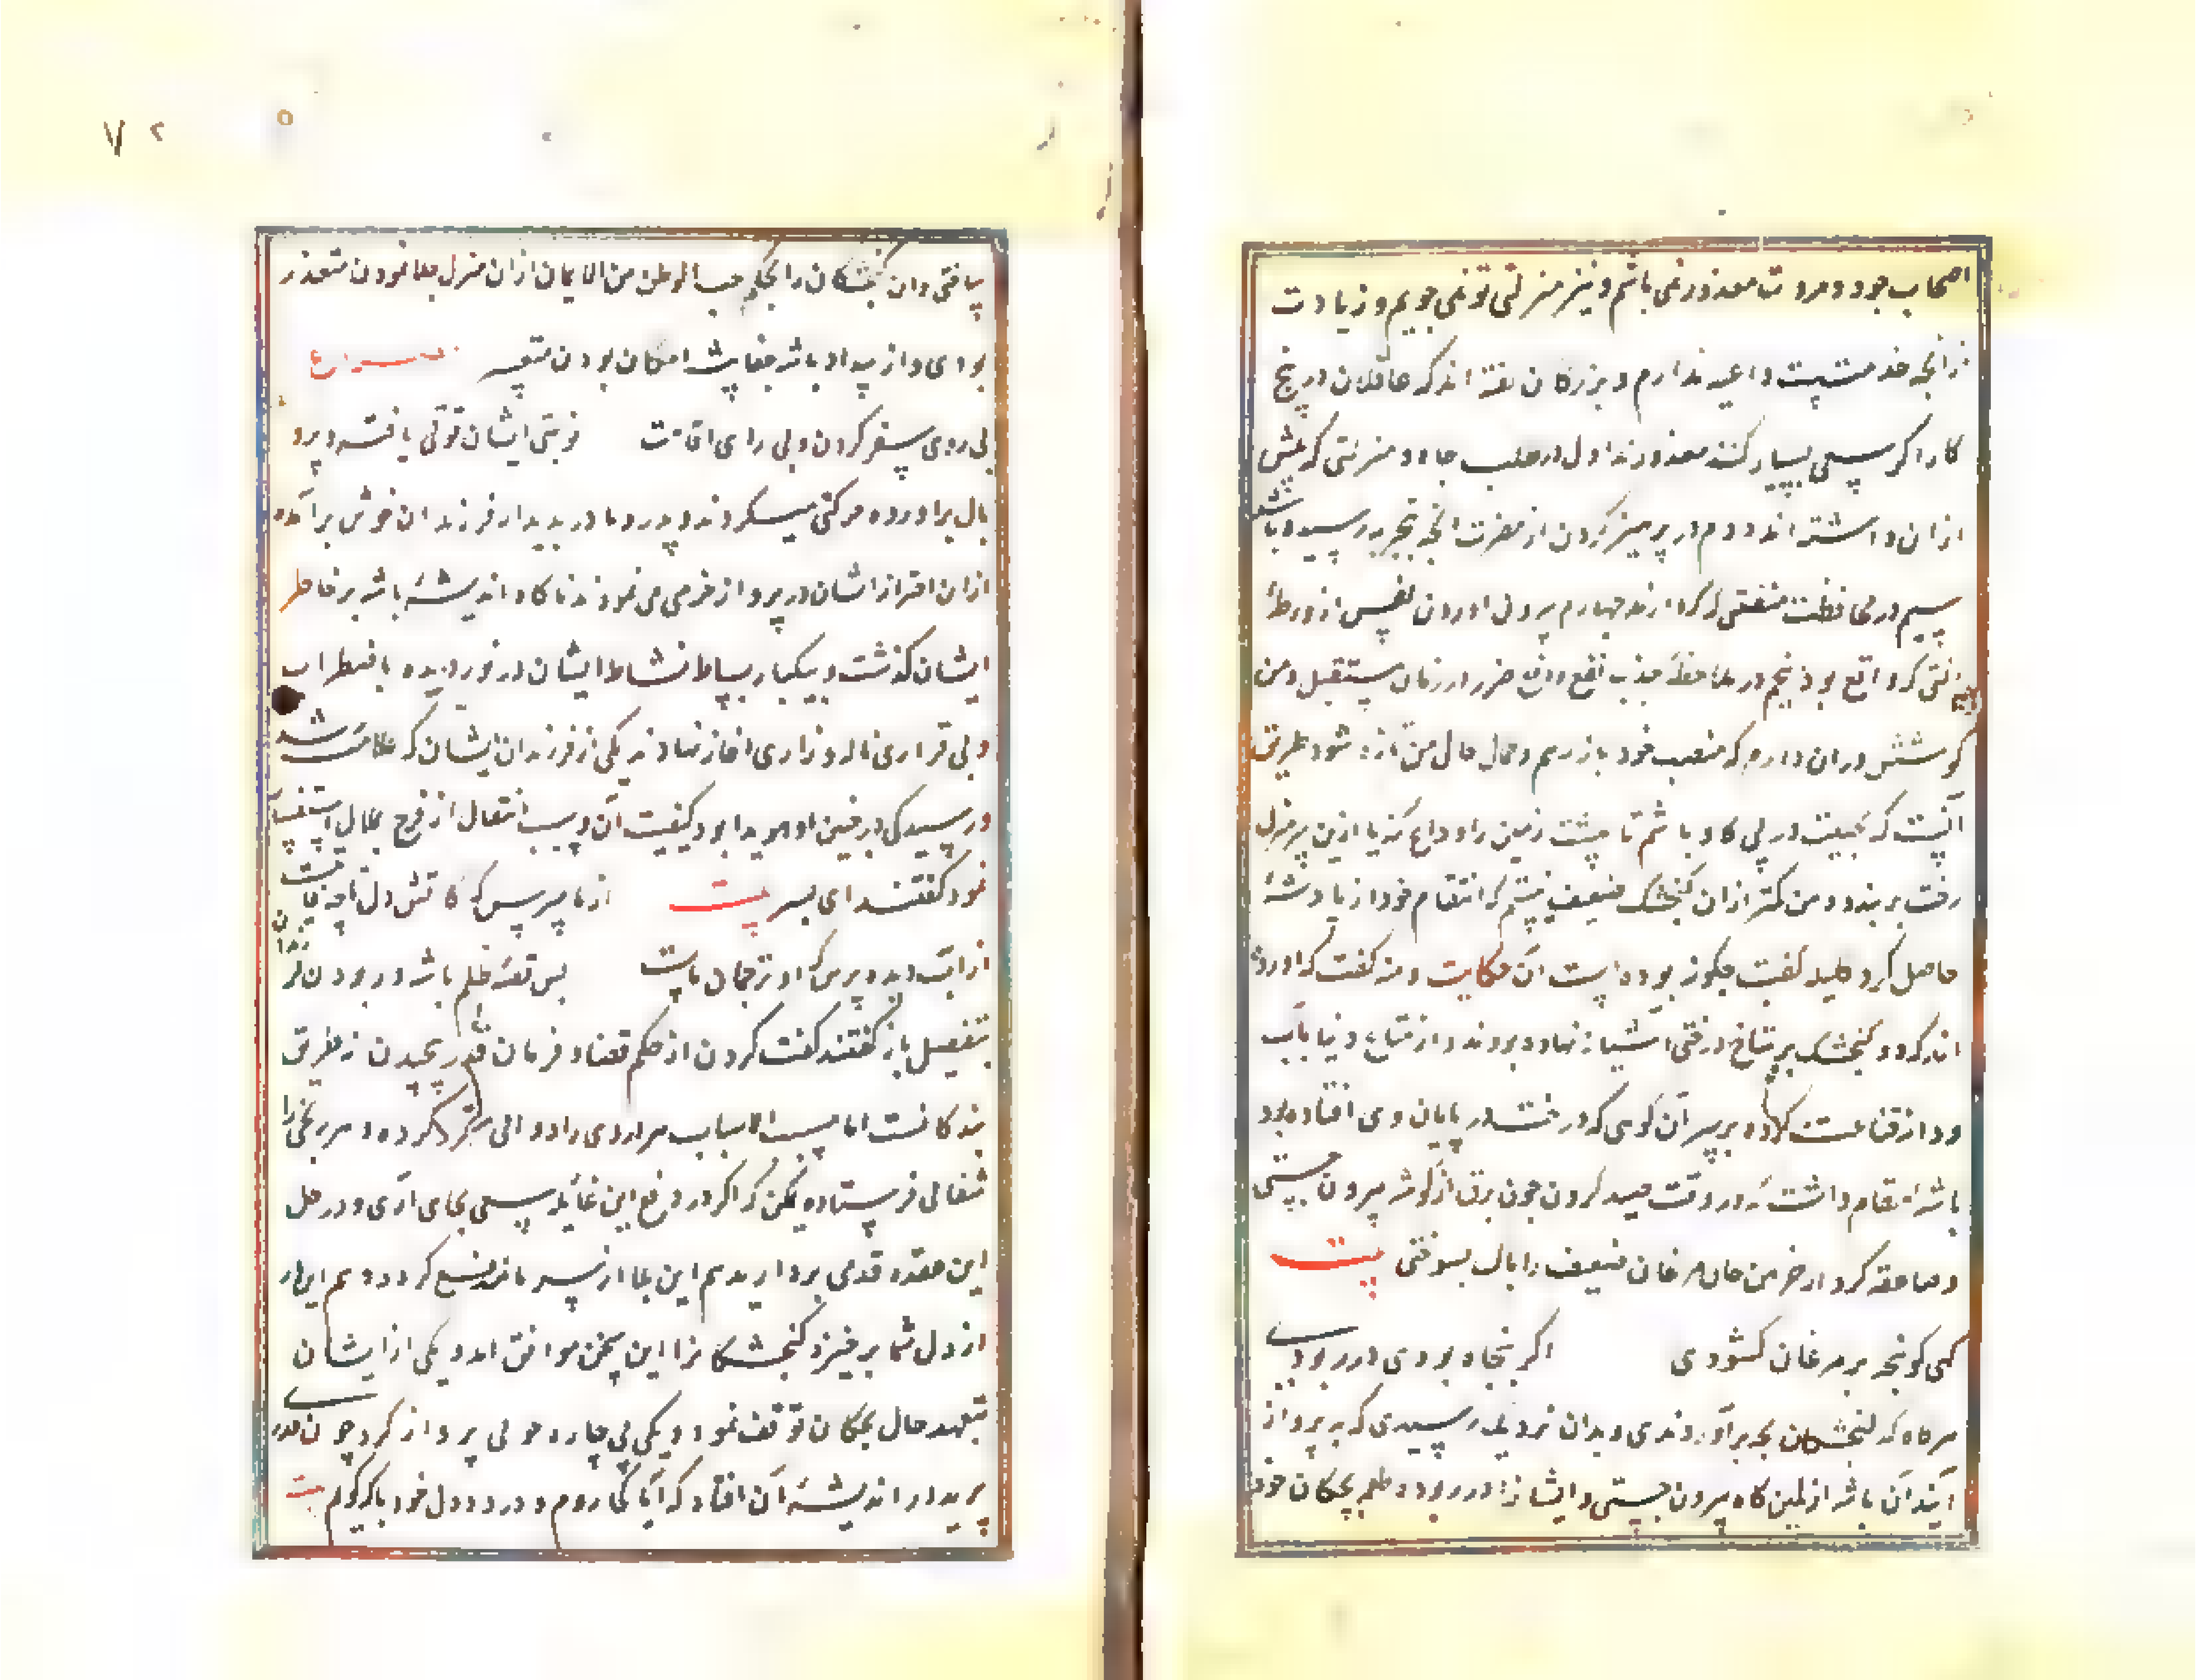 اصحاب جود و مروت معذور نمی باشم و نیز منزلتی نو نمی جویم و زیادت
از آنچه خدمتست داعیه ندارم و بزرکان کفته اند که عاقلان در پنج
کار اکر سعی بسیار کنند معذورند اول در طلب جاه و منزلتی که پیش
ازان داشته اند دوم در پرهیز کردن از مضرت آنچه بتجربه رسیده باشد
سیم در محافظت منفعتی که دارند چهارم بیرون اوردن نفس از ورطهٔ
افتی که واقع بود پنجم در ملاحظهٔ جذب نفع و دفع ضرر در زمان مستقبل و من
کوشش دران دارم که بمنصب خود باز رسم و جمال حال من تازه شود طریق
آنست که بحیلت در پی کاو باشم تا پشت زمین را وداع کند یا ازین سر منزل
رخت بربندد و من کمتر ازان کنجشک ضعیف نیستم که انتقام خود از باشهٔ
حاصل کرد کلیله کفت چکونه بوده است آن حکایت دمنه کفت که اورده
اند که دو کنجشک بر شاخ درختی اشیانه نهاده بودند و از متاع دنیا باب
و دانه قناعت کرده بر سر آن کوهی که درخت در پایان وی افتاده بود
باشهٔ مقام داشت که در وقت صید کردن چون برق از کوشه بیرون جستی
و صاعقه کردار خرمن جان مرغان ضعیف را بال بسوختی بیت
کهی کو پنجه بر مرغان کشودی اکر پنجاه بودی در ربودی
هرکاه که کنجشکان بچه برآوردندی و بدان نزدیک رسیدی که به پرواز
آیند آن باشه از کمین کاه بیرون جستی و ایشانرا در ربوده طعمه بچکان خود
ساختی و ان کنجشکان را بحکم حب الوطن من الایمان ازان منزل جلا نمودن متعذر
بودی و از بیداد باشه جفا پیشه امکان بودن متعسر مصراع
نی روی سفر کردن و نی رای اقامت نوبتی ایشان قوتی یافته و پر و
بال براورده حرکتی میکردند و پدر و مادر بدیدار فرزندان خوش برآمده
ازان اهتزاز ایشان در پرواز خرمی می نمودند ناکاه اندیشهٔ باشه بر خاطر
ایشان کذشت و بیکبار بساط نشاط ایشان در نوردیده باضطراب
و بی قراری ناله و زاری اغاز نهادند یکی از فرزندان ایشان که علامت رشد
و رسیدکی در جبین او هویدا بود کیفیت آن و سبب انتقال از فرح بملال استفسار
نمود کفتند ای پسر بیت از ما مپرس که اتش دل تا چه غایتست
از آب دیده پرس که او ترجمان ماست پس قصهٔ ظلم باشه و ربودن فرزندان
بتفصیل باز کفتند کفت کردن از حکم قضا و فرمان قدر پیچیدن نه طریق
بندکانست اما مسبب الاسباب هر دردی را دوائی مقرر کرده و هر رنجی را
شفائی فرستاده یمکن که اکر در دفع این غایله سعی بجای آری و در حل
این عقده قدمی بردارید هم این بلا از سر ما مندفع کردد و هم این بار
از دل شما برخیزد کنجشکانرا این سخن موافق امد و یکی از ایشان
بتعهد حال بچکان توقف نمود و یکی پی چاره جوئی پرواز کرد چون قدری
پرید در اندیشهٔ آن افتاد که آیا کجا روم و درد دل خود با که کویم بیت